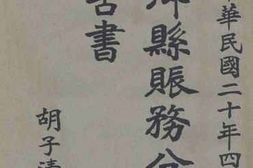 華民國二十年四
縣賑務分
告書
胡子清